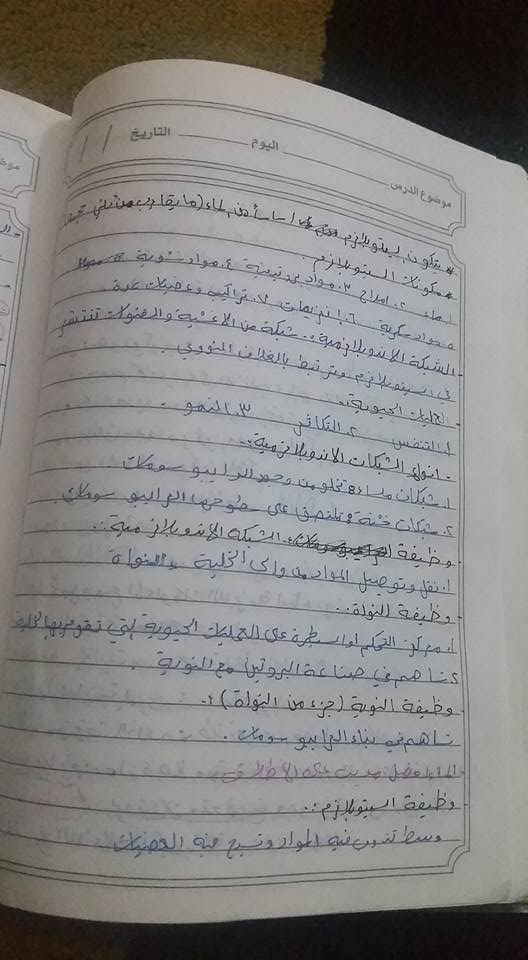 موضوع الدرس اليوم التاريخ / /
* يتكون السيتوبلازم اساساً من الماء (ما يقارب من ثلثي
* مكونات السيتوبلازم.
١. ماء ٢. املاح ٣. مواد بروتينية ٤. مواد
٥. مواد سكرية ٦. انزيمات ٧. تراكيب وعضيات عدة
الشبكة الاندوبلازمية:. شبكة من الاغشية والقنوات تنتشر
في السيتوبلازم وترتبط بالغلاف النووي.
العمليات الحيوية:.
١. التنفس ٢. التكاثر ٣. النمو.
انواع الشبكات الاندوبلازمية:.
١. شبكات ملساء: تخلو من وجود الرايبوسومات
٢. شبكات خشنة: تلتصق على سطوحها الرايبوسومات.
وظيفة الشبكة الاندوبلازمية:.
١. نقل وتوصيل المواد من والى الخلية والنواة
وظيفة النواة:.
١. مركز التحكم او السيطرة على العمليات الحيوية التي تقوم بها الخلية
٢. تساهم في صناعة البروتين مع النوية.
وظيفة النوية (جزء من النواة):.
تساهم في بناء الرايبوسومات.
الماء افضل مذيب على الاطلاق
وظيفة السيتوبلازم:.
وسط تذوب فيه المواد وتسبح فيه العضيات